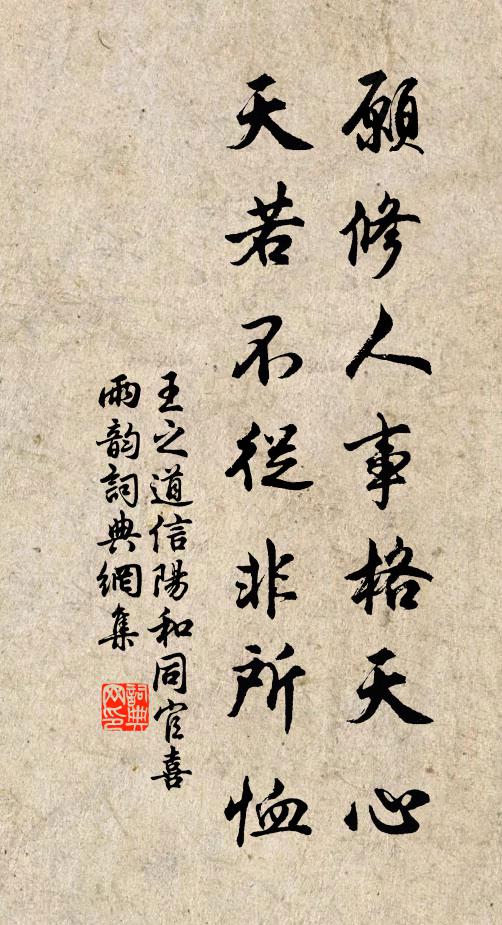 願修人事格天心
天若不從非所恤
王之道信陽和同官喜
雨韵詞典網集
詞典
网印